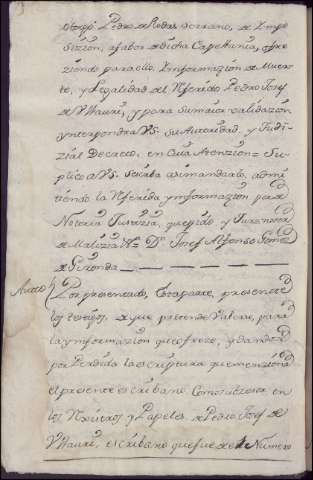 otorgó Pedro de Rodas serrano, de Ympo
sizion, afabor de dicha Capellania, ofre
ziendo para ello Ynformazion de Muer
te, y Legalidad del Referido Pedro Josef
de V y para su maior validazion
ynterpondra VS. su Autoridad, y Judi
zial Decreto, en Cuia Atenzion = Su
plico a VS. se sirba asi mandarlo, admi
tiendo la Referida ynformazion para
Notoria Justizia, que pido y
de Malizia Dn. Josef Alfonso Gomez
de
Auto Por presentado, Estaparte, presente
los testigos, de que pretende Valerse, para
la ynformazion que ofreze, y dandose
por Perdida la escriptura que menziona
el presente escribano, Como subzesor, en
los Rexistros y Papeles, de Pedro Josef de
V escribano que fue de el Numero